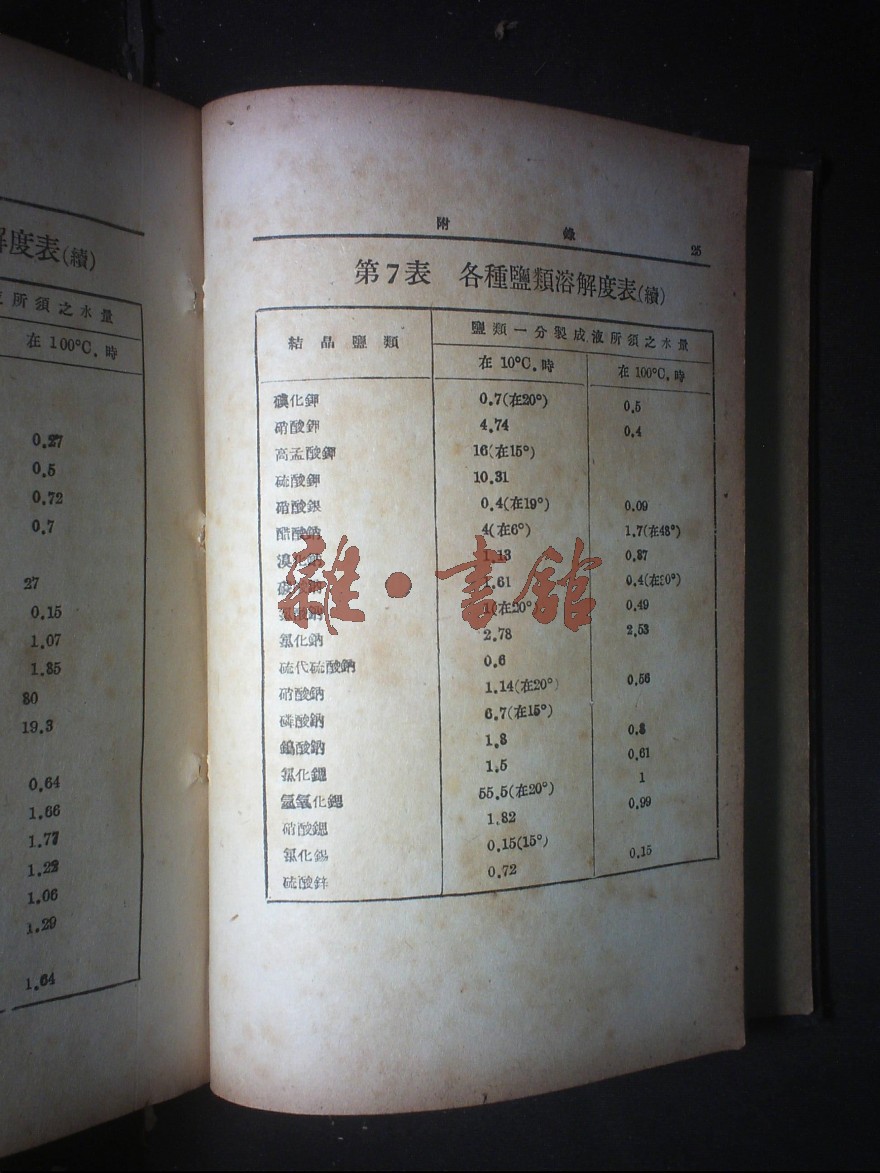 解度表(續)
所須之水量
在 100°C.時
0.27
0.5
0.72
0.7
27
0.15
1.07
1.85
80
19.3
0.64
1.66
1.77
1.22
1.06
1.29
1.64
附 錄 25
第7表 各種鹽類溶解度表(續)
結晶鹽類 鹽類一分製成液所須之水量
在 10°C.時 在 100°C.時
碘化鉀 0.7(在20°) 0.5
硝酸鉀 4.74 0.4
高孟酸鉀 16(在15°)
硫酸鉀 10.31
硝酸銀 0.4(在19°) 0.09
醋酸鈉 4(在6°) 1.7(在48°)
溴化鈉 1.13 0.87
鈉 1.61 0.4
酸鈉 1(在20°) 0.49
氯化鈉 2.78 2.53
硫代硫酸鈉 0.6
硝酸鈉 1.14(在20°) 0.56
磷酸鈉 6.7(在15°)
鎢酸鈉 1.8 0.8
氯化鍶 1.5 0.61
氫氧化鍶 55.5(在20°) 1
硝酸鍶 1.82 0.99
氯化錫 0.15(15°)
硫酸鋅 0.72 0.15
雜·書館